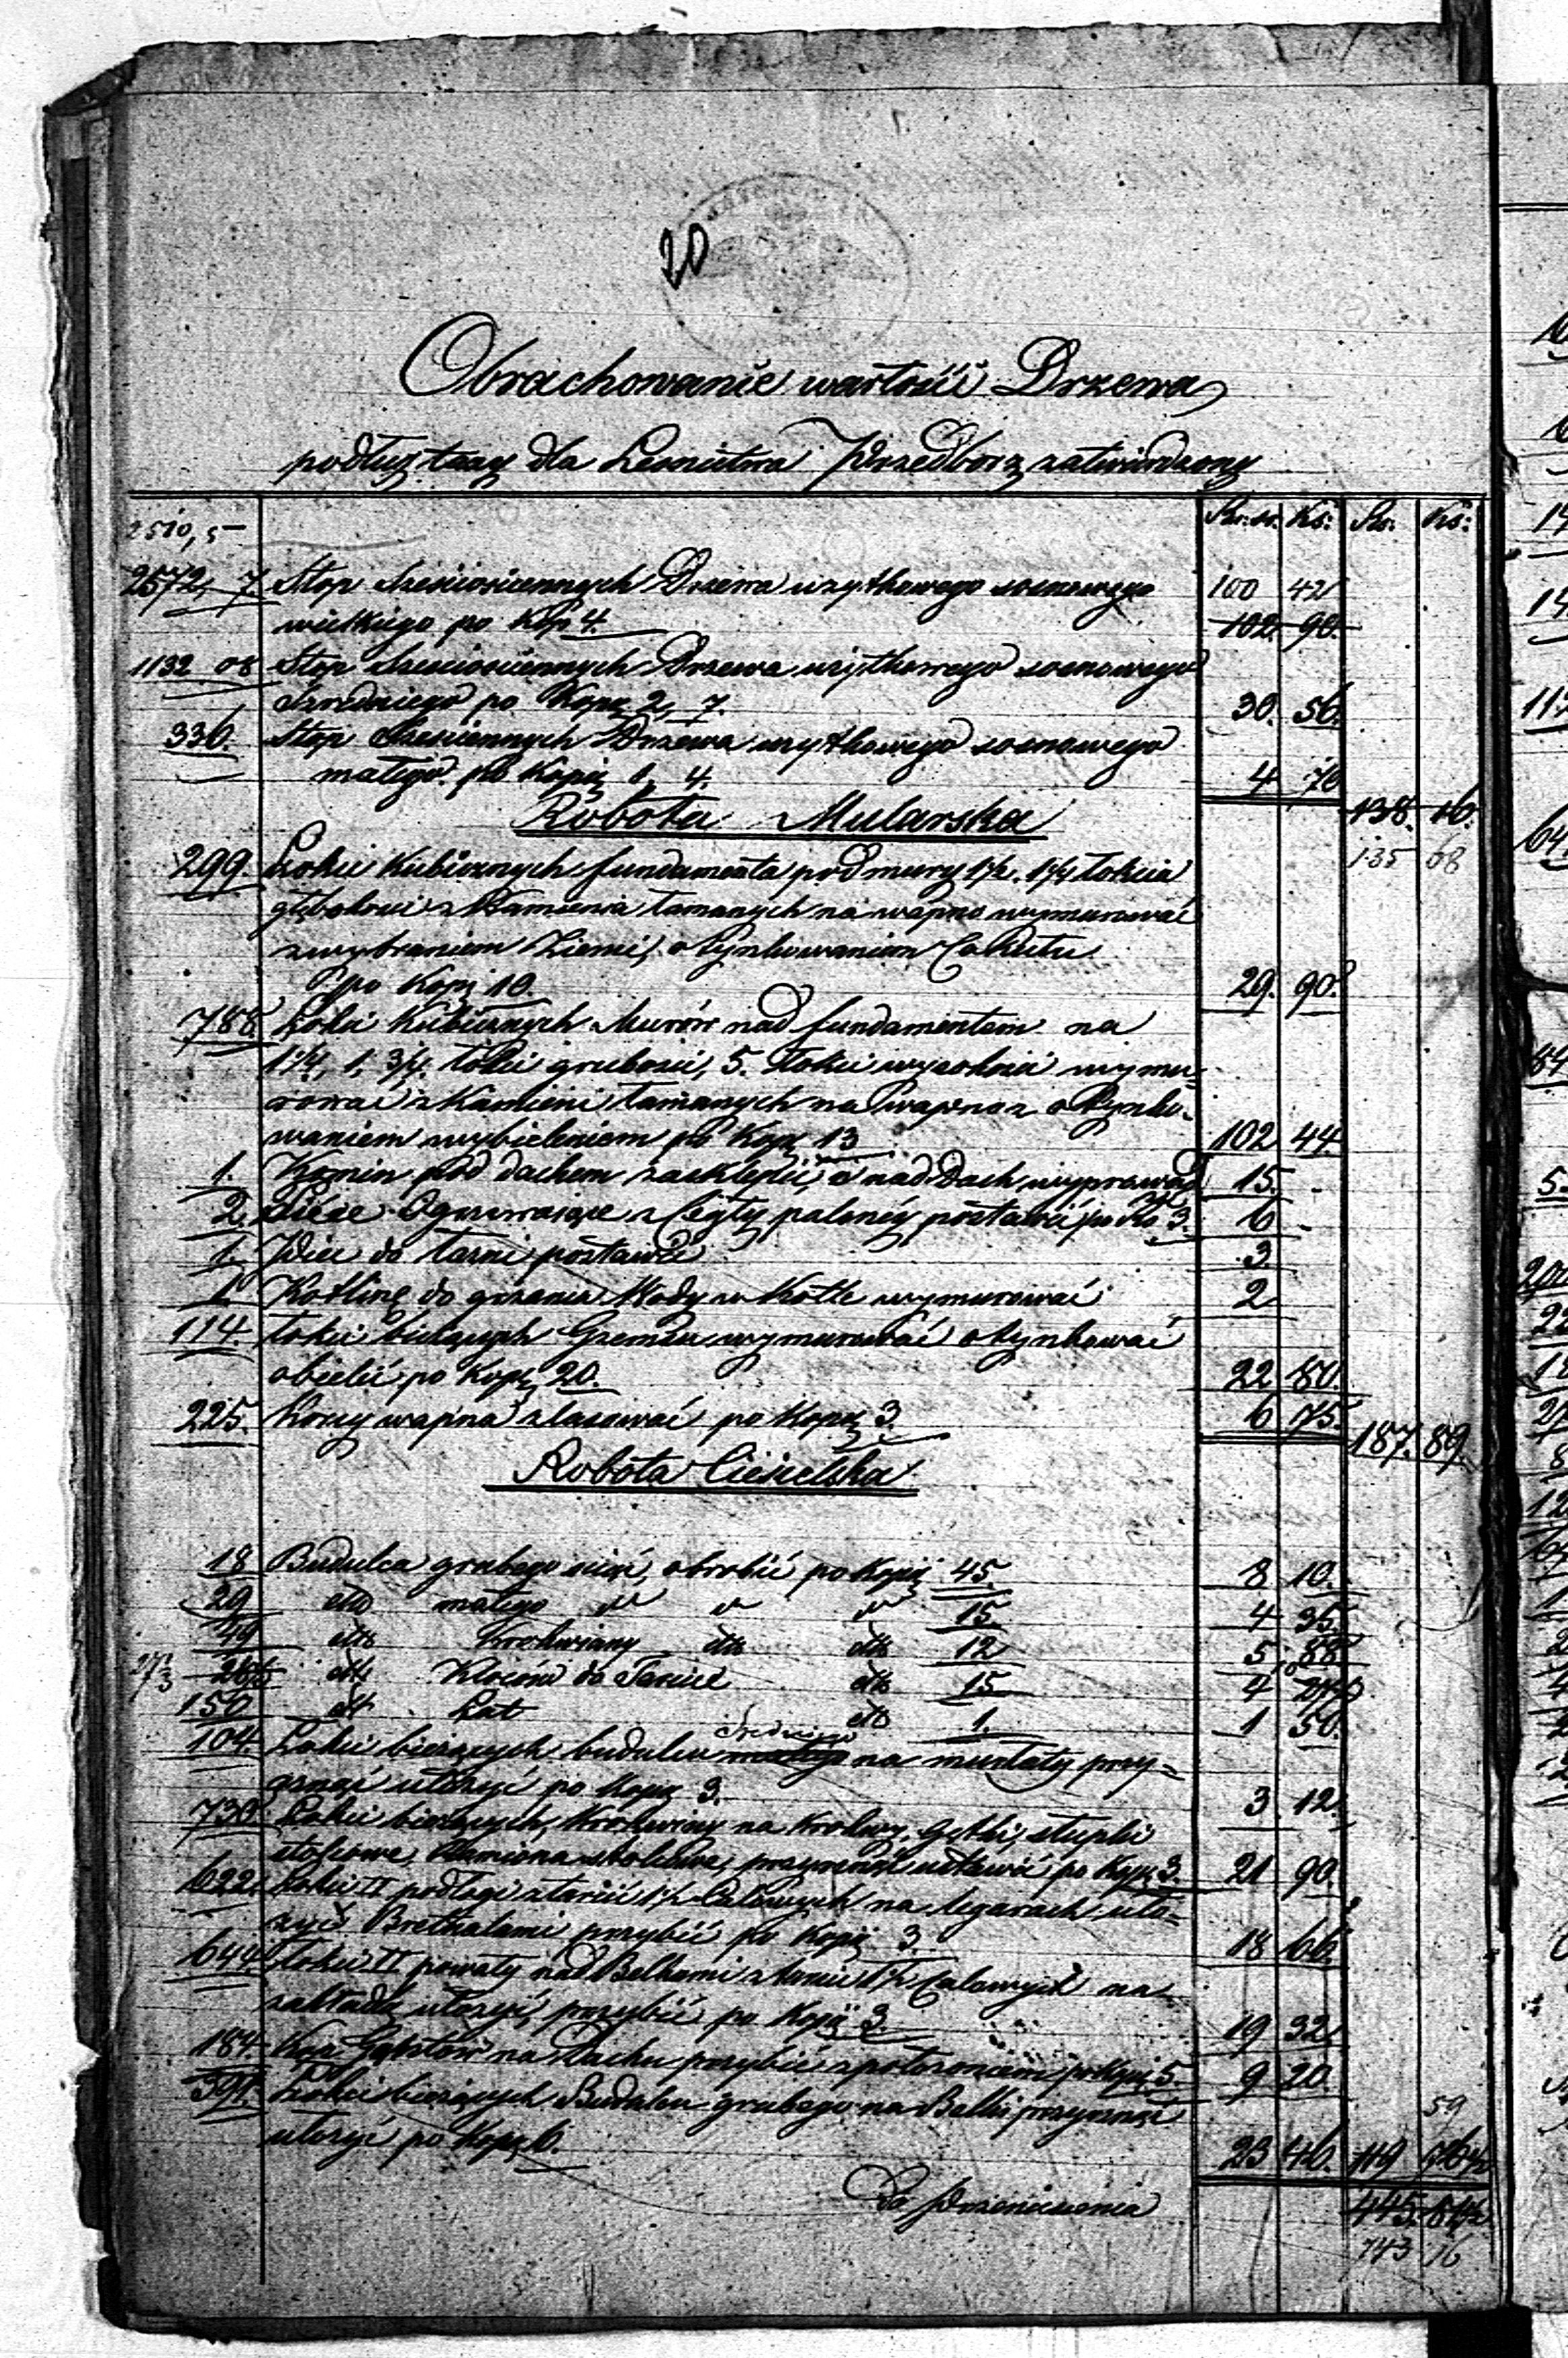 20
Obrachowanie wartości Drzewa
podług taxy dla Leśnictwa Przedborz zatwierdzony
Rs. Ks: Rs. Ks:
2510,5
2572, 7. Stop Sześciennych Drzewa użytkowego sosnowego 100 42
wielkiego po Kop 4. 102. 90.
1132 08 Stop Sześciennych Drzewa użytkowego sosnowego
średniego po Kopę 2, 7. 30. 56.
336. Stop Sześciennych Drzewa użytkowego sosnowego
małego po Kopię 1, 4. 4 70
138. 16.
Robota Mularska
135 68
299. Łokci Kubicznych fundamenta pod mury 1½. 1¼ łokcia
głębokości z Kamienia łamanych na wapno wymurować
z wybraniem Ziemi, otynkowaniem
po Kopię 10 29. 90.
788. Łokci Kubicznych Murów nad fundamentem na
1¼, 1, ¾ łokci grubości, 5. łokci wysokości wymu-
rować z Kamieni łamanych na wapno z otynko-
waniem wybieleniem po Kopę 13 102 44.
1. Komin pod dachem zasklepić, a nad Dach wyprowad 15. -
2. Piece Ogrzewające z Cegły palonéj postawić po Rs 3. 6 -
1. Piec do łaźni postawić 3.
1. Kotlinę do grzania Wody w Kotle wymurować 2.
114 łokci bieżących Gzemsu wymurować otynkować
obielić po Kopię 20. 22 80.
225. Korcy wapna zlasować po Kopię 3. 6 75.
187. 89.
Robota Ciesielska
18 Budulca grubego ściąć, obrobić po Kopię 45. 8 10.
29 dtto małego " " " 15 4 35.
49 dtto Krokwiany dtto dtto 12 5. 88.
27⅓ dtto Kloców do Tarcic dtto 15 4
150 dtto Łat dtto 1. 1 50.
średniego
104. Łokci bieżących budulcu na murłaty przy-
rznąć ułożyć po Kopę 3. 3 12.
730. Łokci bieżących, Krokwiany na Krokwy, Jętki, stupki
stolcowe, stolcowe, przyrznąć ustawić po Kop. 3. 21 90.
622. Łokci □ podłogi z tarcic 1½ Calowych na legarach uło-
żyć Bretnalami przybić po Kopię 3. 18 66.
644 Łokci □ powały nad Belkami z tarcic 1½ Calowych na
zakładę ułożyć, przybić po Kopię 3. 19 32.
184. Kóp Gontów na Dachu przybić z połozeniem po Kopię 5. 9 20.
391. Łokci bieżących Budulcu grubego na Belki przyrznąć
59
ułożyć po Kopię 6. 23 46. 119
Do Przeniesienia 445.
443 16